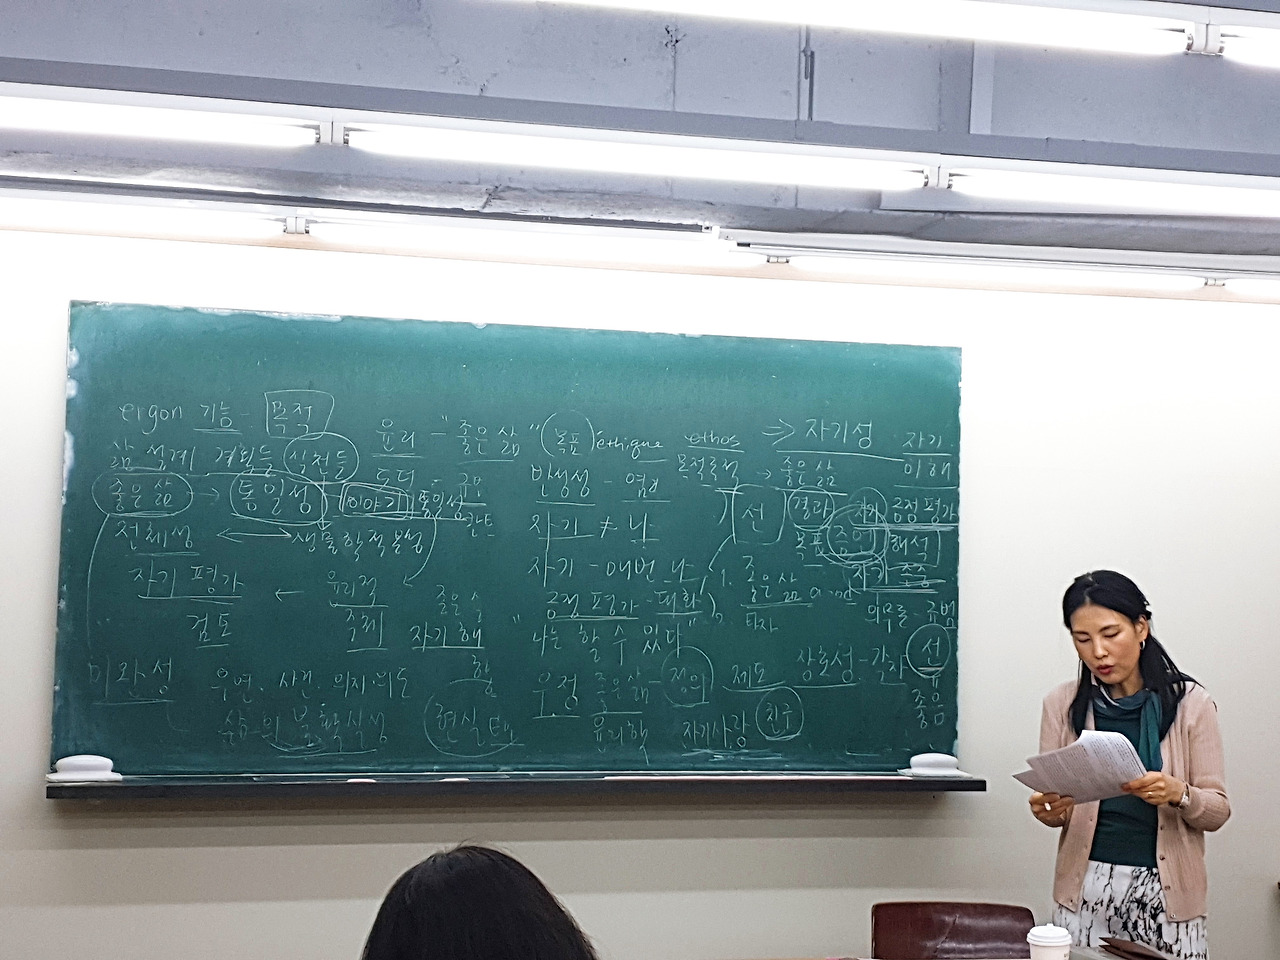 ergon 기능 - 목적
삶 설계 계획들 실천들
좋은 삶 → 통일성 이야기 통일성
전체성 ↔ 생물학적 본성
자기 평가 ← 윤리적 주체
검토
미완성
우연. 사건. 의지. 의도
삶의 불확실성
윤리 - "좋은 삶" (목표) éthique ethos ⇒ 자기성
도덕 -
칸트
반성성 -
자기 ≠ 나
자기 - 매번 나
긍정 평가 -
"나는 할 수 있다"
자기 해
우정 좋은 삶 - 정의 제도 상호성 -
윤리학 자기사랑 친구
목적론적 → 좋은 삶
선 결과 자기 긍정평가
목표 해석
자기 존중
1. 좋은 삶 a good
타자
의무론 - 규범
선
좋음
자기
이해